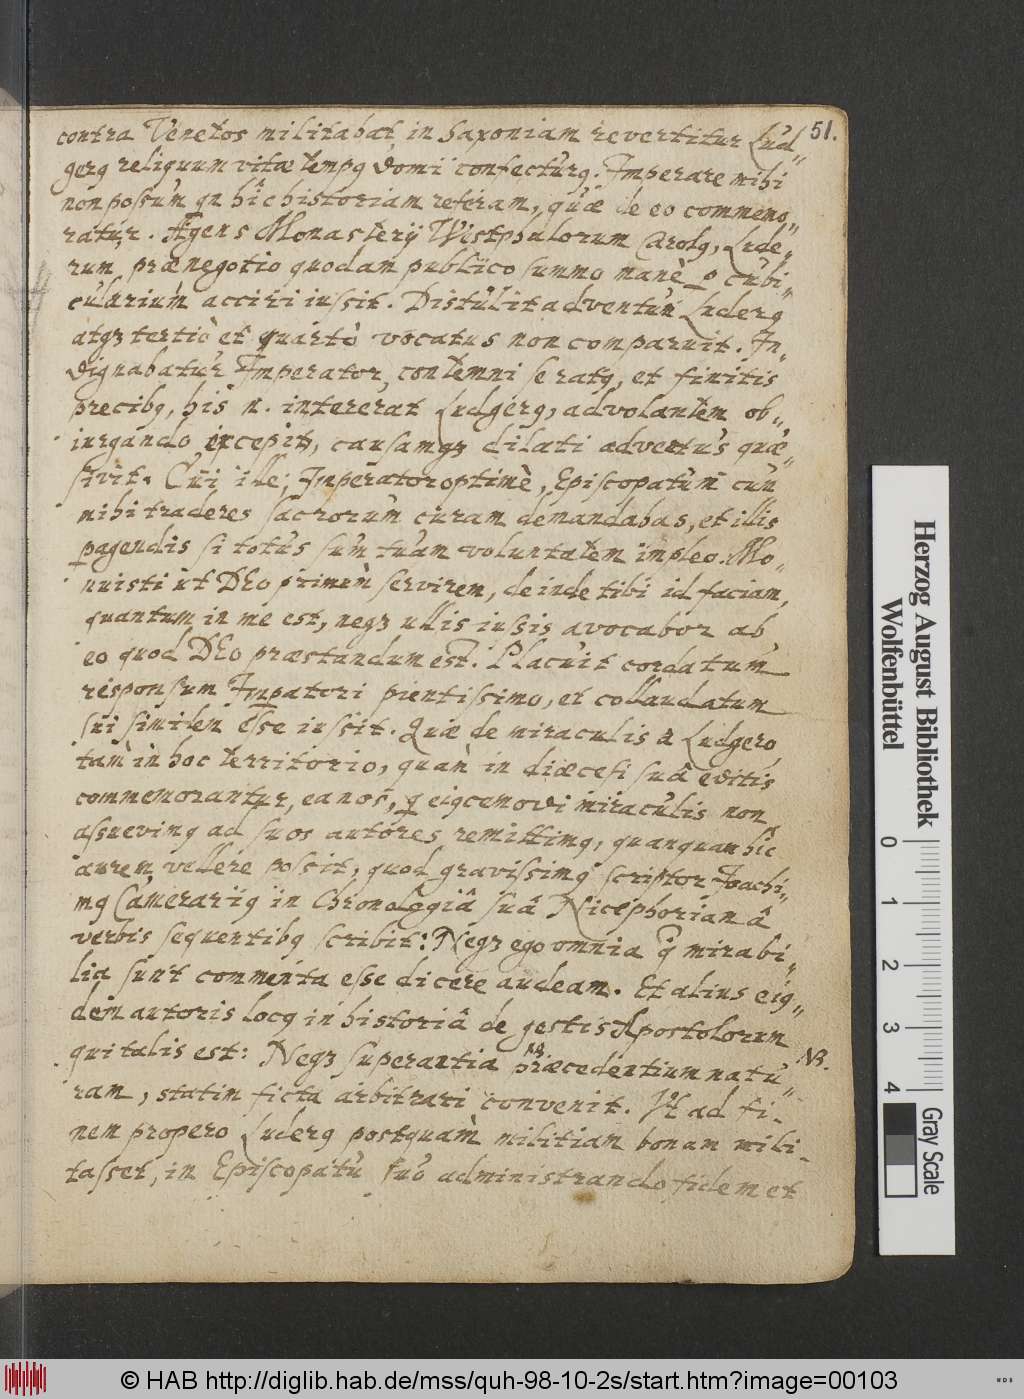 51.
contra Venetos militabat in Saxoniam revertitur Lud„
gerꝰ reliquum vitæ tempꝰ domi confecturꝰ. Imperare mihi
non possum qn hîc historiam referam, quæ de eo commemo„
ratur. Agens Monasterij Westphalorum Carolꝰ, Lude„
rum præ negotio quodam publico summo manè ꝑ cubi„
cularium acciri iussit. Distulit adventum Luderꝰ
atqꝫ tertiò et quartò vocatus non comparuit. In„
dignabatur Imperator, contemni se ratꝰ, et finitis
precibꝰ, his n. intererat Ludgerꝰ, advolantem ob„
iurgando excepit, causamqꝫ dilati adventus quæ„
sivit. Cui ille; Imperator optimè, Episcopatum cum
mihi traderes sacrorum curam demandabas, et illis
ꝑagendis si totus sum tuam voluntatem impleo. Mo„
nuisti ut DEo primùm servirem, deinde tibi id faciam,
quantum in me est, neqꝫ ullis iussis avocabor ab
eo quod DEo præstandum est. Placuit cordatum
responsum Imꝑatori pientissimo, et collaudatum
sui similem esse iussit. Quæ de miraculis à Ludgero
tam in hoc territorio, quàm in diœcesi suâ editis
commemorantur, ea nos, qui eiꝰcemodi miraculis non
assuevimꝰ ad suos autores remittimꝰ, quanquam hîc
aurem vellere possit, quod gravissimꝰ scriptor Joachi„
mꝰ Camerariꝰ in Chronologiâ suâ Nicephorianâ
verbis sequentibꝰ scribit: Neqꝫ ego omnia q̃ mirabi„
lia sunt commenta esse dicere audeam. Et alius eiꝰ„
dem autoris locꝰ in historiâ de gestis Apostolorum
qui talis est: Neqꝫ superantia præcedentium natu„
NB.
ram, statim ficta arbitrari convenit. Ut ad fi„
nem propero Luderꝰ postquàm militiam bonam mili„
tasset, in Episcopatu suo administrando fidem et
Herzog August Bibliothek
Wolfenbüttel
0 1 2 3 4
Gray Scale
© HAB http://diglib.hab.de/mss/quh-98-10-2s/start.htm?image=00103
WDB